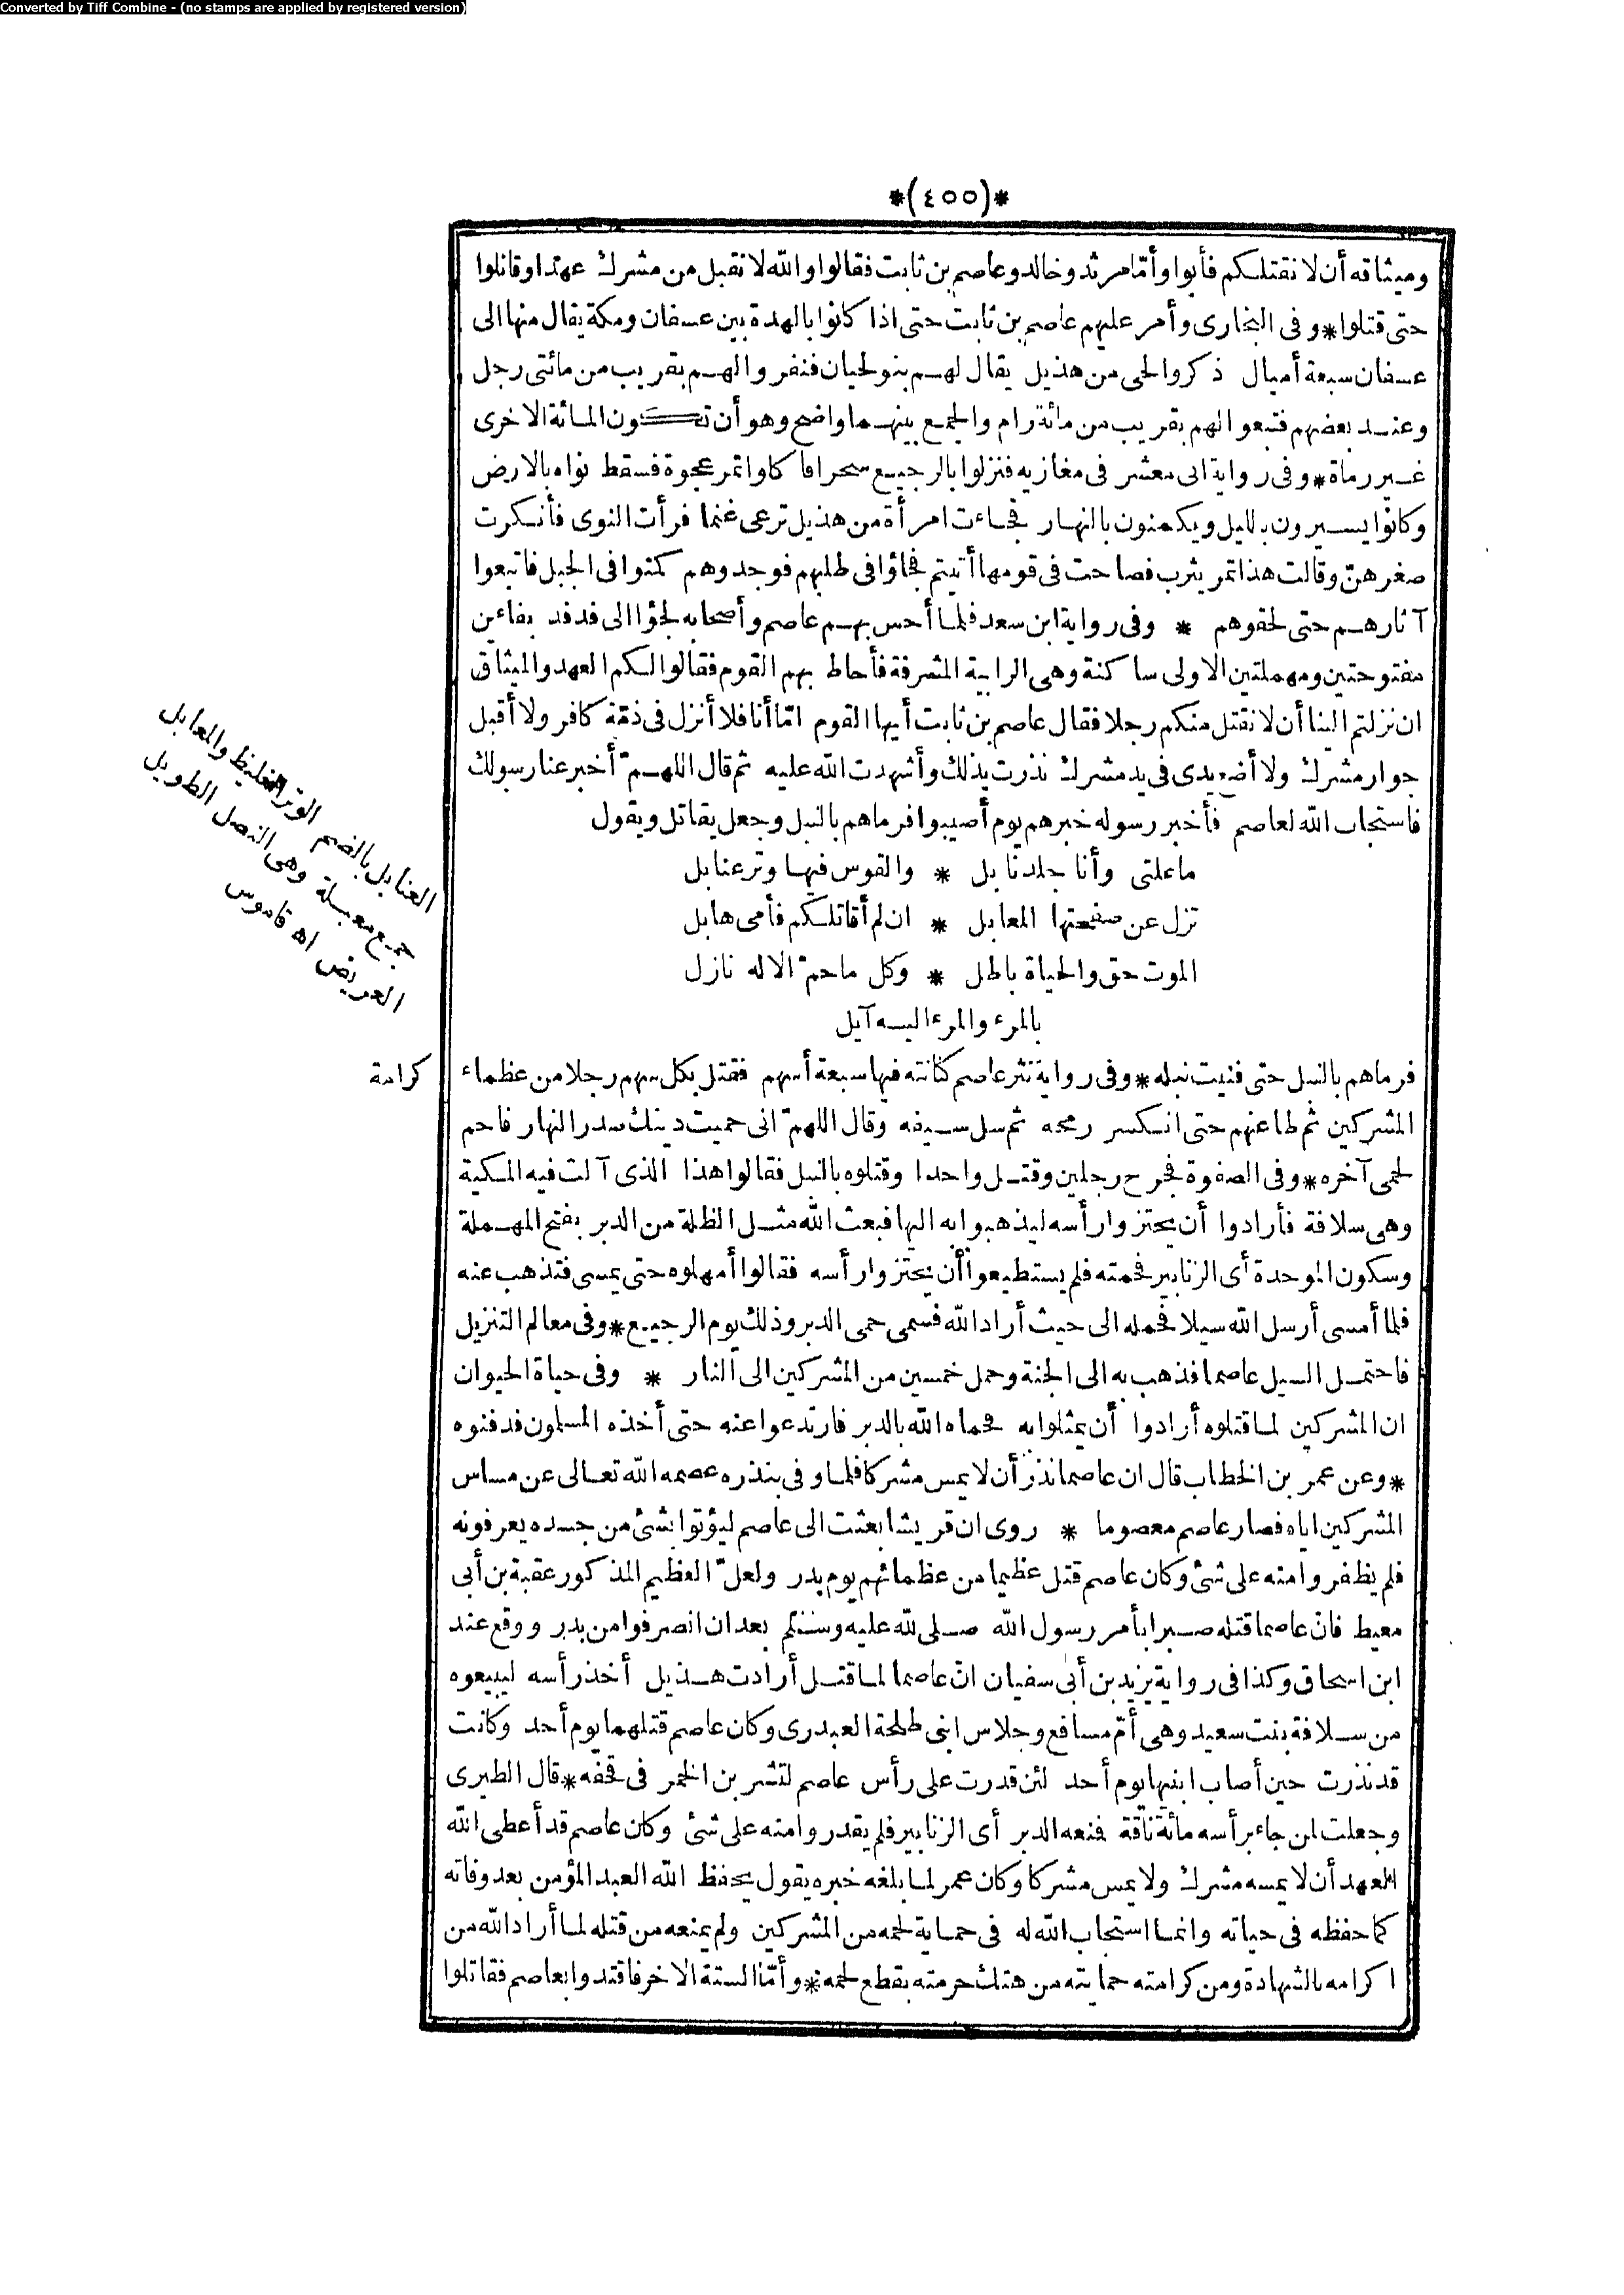 Converted by Tiff Combine - (no stamps are applied by registered version)
*(٤٥٥)*
وميثاقه أن لا نقتلكم فأبوا وأمّا مرثد وخالد وعاصم بن ثابت فقالوا والله لا نقبل من مشرك عهدا وقاتلوا
حتى قتلوا * وفى البخارى وأمر عليهم عاصم بن ثابت حتى اذا كانوا بالهدة بين عسفان ومكة يقال منها الى
عسفان سبعة أميال ذكروا لحى من هذيل يقال لهم بنو لحيان فنفروا لهم بقريب من مائتى رجل
وعند بعضهم فتبعوا لهم بقريب من مائة رام والجمع بينهما واضح وهو أن تكون المائة الاخرى
غير رماة * وفى رواية ابى معشر فى مغازيه فنزلوا بالرجيع سحرا فأكلوا تمر عجوة فسقط نواه بالارض
وكانوا يسيرون بالليل ويكمنون بالنهار فجاءت امرأة من هذيل ترعى غنما فرأت النوى فأنكرت
صغرهنّ وقالت هذا تمر يثرب فصاحت فى قومها أتيتم فجاؤا فى طلبهم فوجدوهم كمنوا فى الجبل فاتبعوا
آثارهم حتى لحقوهم * وفى رواية ابن سعد فلما أحس بهم عاصم وأصحابه لجؤا الى فدفد بفاءين
مفتوحتين ومهملتين الاولى ساكنة وهى الرابية المشرفة فأحاط بهم القوم فقالوا لكم العهد والميثاق
ان نزلتم الينا أن لا نقتل منكم رجلا فقال عاصم بن ثابت أيها القوم امّا أنا فلا أنزل فى ذمّة كافر ولا أقبل
جوار مشرك ولا أضع يدى فى يد مشرك نذرت بذلك وأشهدت الله عليه ثم قال اللهمّ أخبر عنا رسولك
فاستجاب الله لعاصم فأخبر رسوله خبرهم يوم أصيبوا فرماهم بالنبل وجعل يقاتل ويقول
ما علتى وأنا جلد نابل * والقوس فيها وتر عنابل
تزل عن صفحتها المعابل * ان لم أقاتلكم فأمى هابل
الموت حق والحياة باطل * وكل ما حمّ الاله نازل
بالمرء والمرء اليه آيل
العنابل بالضم الوتر الغليظ والمعابل
جمع معبلة وهى النصل الطويل
العريض اه قاموس
فرماهم بالنبل حتى فنيت نبله * وفى رواية نثر عاصم كنانته فيها سبعة أسهم فقتل بكل سهم رجلا من عظماء
كرامة
المشركين ثم طاعنهم حتى انكسر رمحه ثم سل سيفه وقال اللهمّ انى حميت دينك صدر النهار فاحم
لحمى آخره * وفى الصفوة فجرح رجلين وقتل واحدا وقتلوه بالنبل فقالوا هذا الذى آلت فيه المكية
وهى سلافة فأرادوا أن يحتزوا رأسه ليذهبوا به اليها فبعث الله مثل الظلة من الدبر بفتح المهملة
وسكون الموحدة أى الزنابير فحمته فلم يستطيعوا أن يحتزوا رأسه فقالوا أمهلوه حتى يمسى فتذهب عنه
فلما أمسى أرسل الله سيلا فحمله الى حيث أراد الله فسمى حمى الدبر وذلك يوم الرجيع * وفى معالم التنزيل
فاحتمل السيل عاصما فذهب به الى الجنة وحمل خمسين من المشركين الى النار * وفى حياة الحيوان
ان المشركين لما قتلوه أرادوا أن يمثلوا به فحماه الله بالدبر فارتدعوا عنه حتى أخذه المسلمون فدفنوه
* وعن عمر بن الخطاب قال ان عاصما نذر أن لا يمس مشركا فلما وفى بنذره عصمه الله تعالى عن مساس
المشركين اياه فصار عاصم معصوما * روى ان قريشا بعثت الى عاصم ليؤتوا بشئ من جسده يعرفونه
فلم يظفروا منه على شئ وكان عاصم قتل عظيما من عظمائهم يوم بدر ولعلّ العظيم المذكور عقبة بن أبى
معيط فان عاصما قتله صبرا بأمر رسول الله صلى الله عليه وسلم بعد ان انصرفوا من بدر ووقع عند
ابن اسحاق وكذا فى رواية يزيد بن أبى سفيان انّ عاصما لما قتل أرادت هذيل أخذ رأسه ليبيعوه
من سلافة بنت سعيد وهى أمّ مسافع وجلاس ابنى طلحة العبدرى وكان عاصم قتلهما يوم أحد وكانت
قد نذرت حين أصاب ابنيها يوم أحد لئن قدرت على رأس عاصم لتشربن الخمر فى قحفه * قال الطبرى
وجعلت لمن جاء برأسه مائة ناقة فمنعه الدبر أى الزنابير فلم يقدروا منه على شئ وكان عاصم قد أعطى الله
العهد أن لا يمسه مشرك ولا يمس مشركا وكان عمر لما بلغه خبره يقول يحفظ الله العبد المؤمن بعد وفاته
كما حفظه فى حياته وانما استجاب الله له فى حماية لحمه من المشركين ولم يمنعه من قتله لما أراد الله من
اكرامه بالشهادة ومن كرامته حمايته من هتك حرمته بقطع لحمه * وأمّا الستة الاخر فاقتدوا بعاصم فقاتلوا